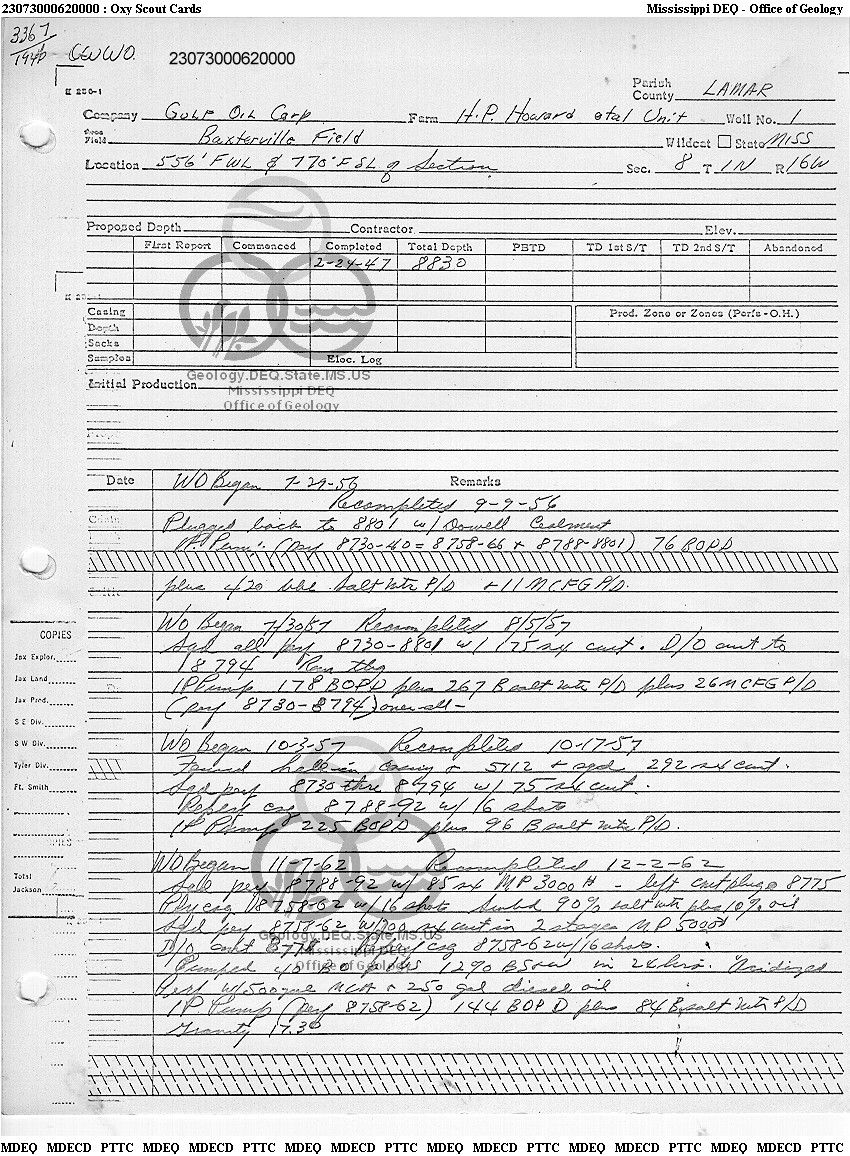 23073000620000 : Oxy Scout Cards Mississippi DEQ - Office of Geology
3367
1946 OWWO. 23073000620000
K 250-1
Parish
County LAMAR
Company GULF OIL Corp Farm H.P. Howard etal Unit Well No. 1
Area
Field Baxterville Field Wildcat State MISS
Location 556' FWL & 770' FSL of Section Sec. 8 T 1N R 16W
Proposed Depth Contractor Elev.
First Report Commenced Completed Total Depth PBTD TD 1st S/T TD 2nd S/T Abandoned
2-24-47 8830
Casing Prod. Zone or Zones (Perfs - O.H.)
Depth
Sacks
Samples Elec. Log
Geology.DEQ.State.MS.US
Initial Production
Mississippi DEQ
Office of Geology
Date WO Began 7-29-56 Remarks
Recompleted 9-9-56
Plugged back to 8801 w/ Dowell Cealment
I.P. Pump: (perf 8730-40 = 8758-66 + 8788-8801) 76 BOPD
plus 420 bbl salt wtr P/D + 11 MCFG P/D.
WO Began 7/30/57 Recompleted 8/5/57
COPIES
Sqd all perf 8730-8801 w/ 175 sx cmt. D/O cmt to
Jax Explor.
8794 Ran tbg
Jax Land
IP Pump 178 BOPD plus 267 B salt wtr P/D plus 26 MCFG P/D
Jax Prod.
(perf 8730-8794) over-all-
S E Div.
S W Div.
WO Began 10-3-57 Recompleted 10-17-57
Tyler Div.
Found hole in casing + 5112 + sqd 292 sx cmt.
Ft. Smith
Sqd perf 8730 thru 8794 w/ 75 sx cmt.
Reperf csg 8788-92 w/ 16 shots
IP Pump 225 BOPD plus 96 B salt wtr P/D.
WO Began 11-7-62 Recompleted 12-2-62
Total
Jackson
Sqd perf 8788-92 w/ 85 sx MP 3000# - left cmt plug @ 8775
Perf csg 8758-62 w/ 16 shots Swbd 90% salt wtr plus 10% oil
Sqd perf 8758-62 w/ 200 sx cmt in 2 stages MP 5000#
Geology.DEQ.State.MS.US
D/O cmt 8771 Reperf csg 8758-62 w/ 16 shots.
Mississippi DEQ
Pumped BO plus 1290 BS+W in 24 hrs. Acidized
Office of Geology
Perf w/ 500 gal MCA + 250 gal diesel oil
IP Pump (perf 8758-62) 144 BOPD plus 84 B salt wtr P/D
Gravity 17.3°
MDEQ MDECD PTTC MDEQ MDECD PTTC MDEQ MDECD PTTC MDEQ MDECD PTTC MDEQ MDECD PTTC MDEQ MDECD PTTC